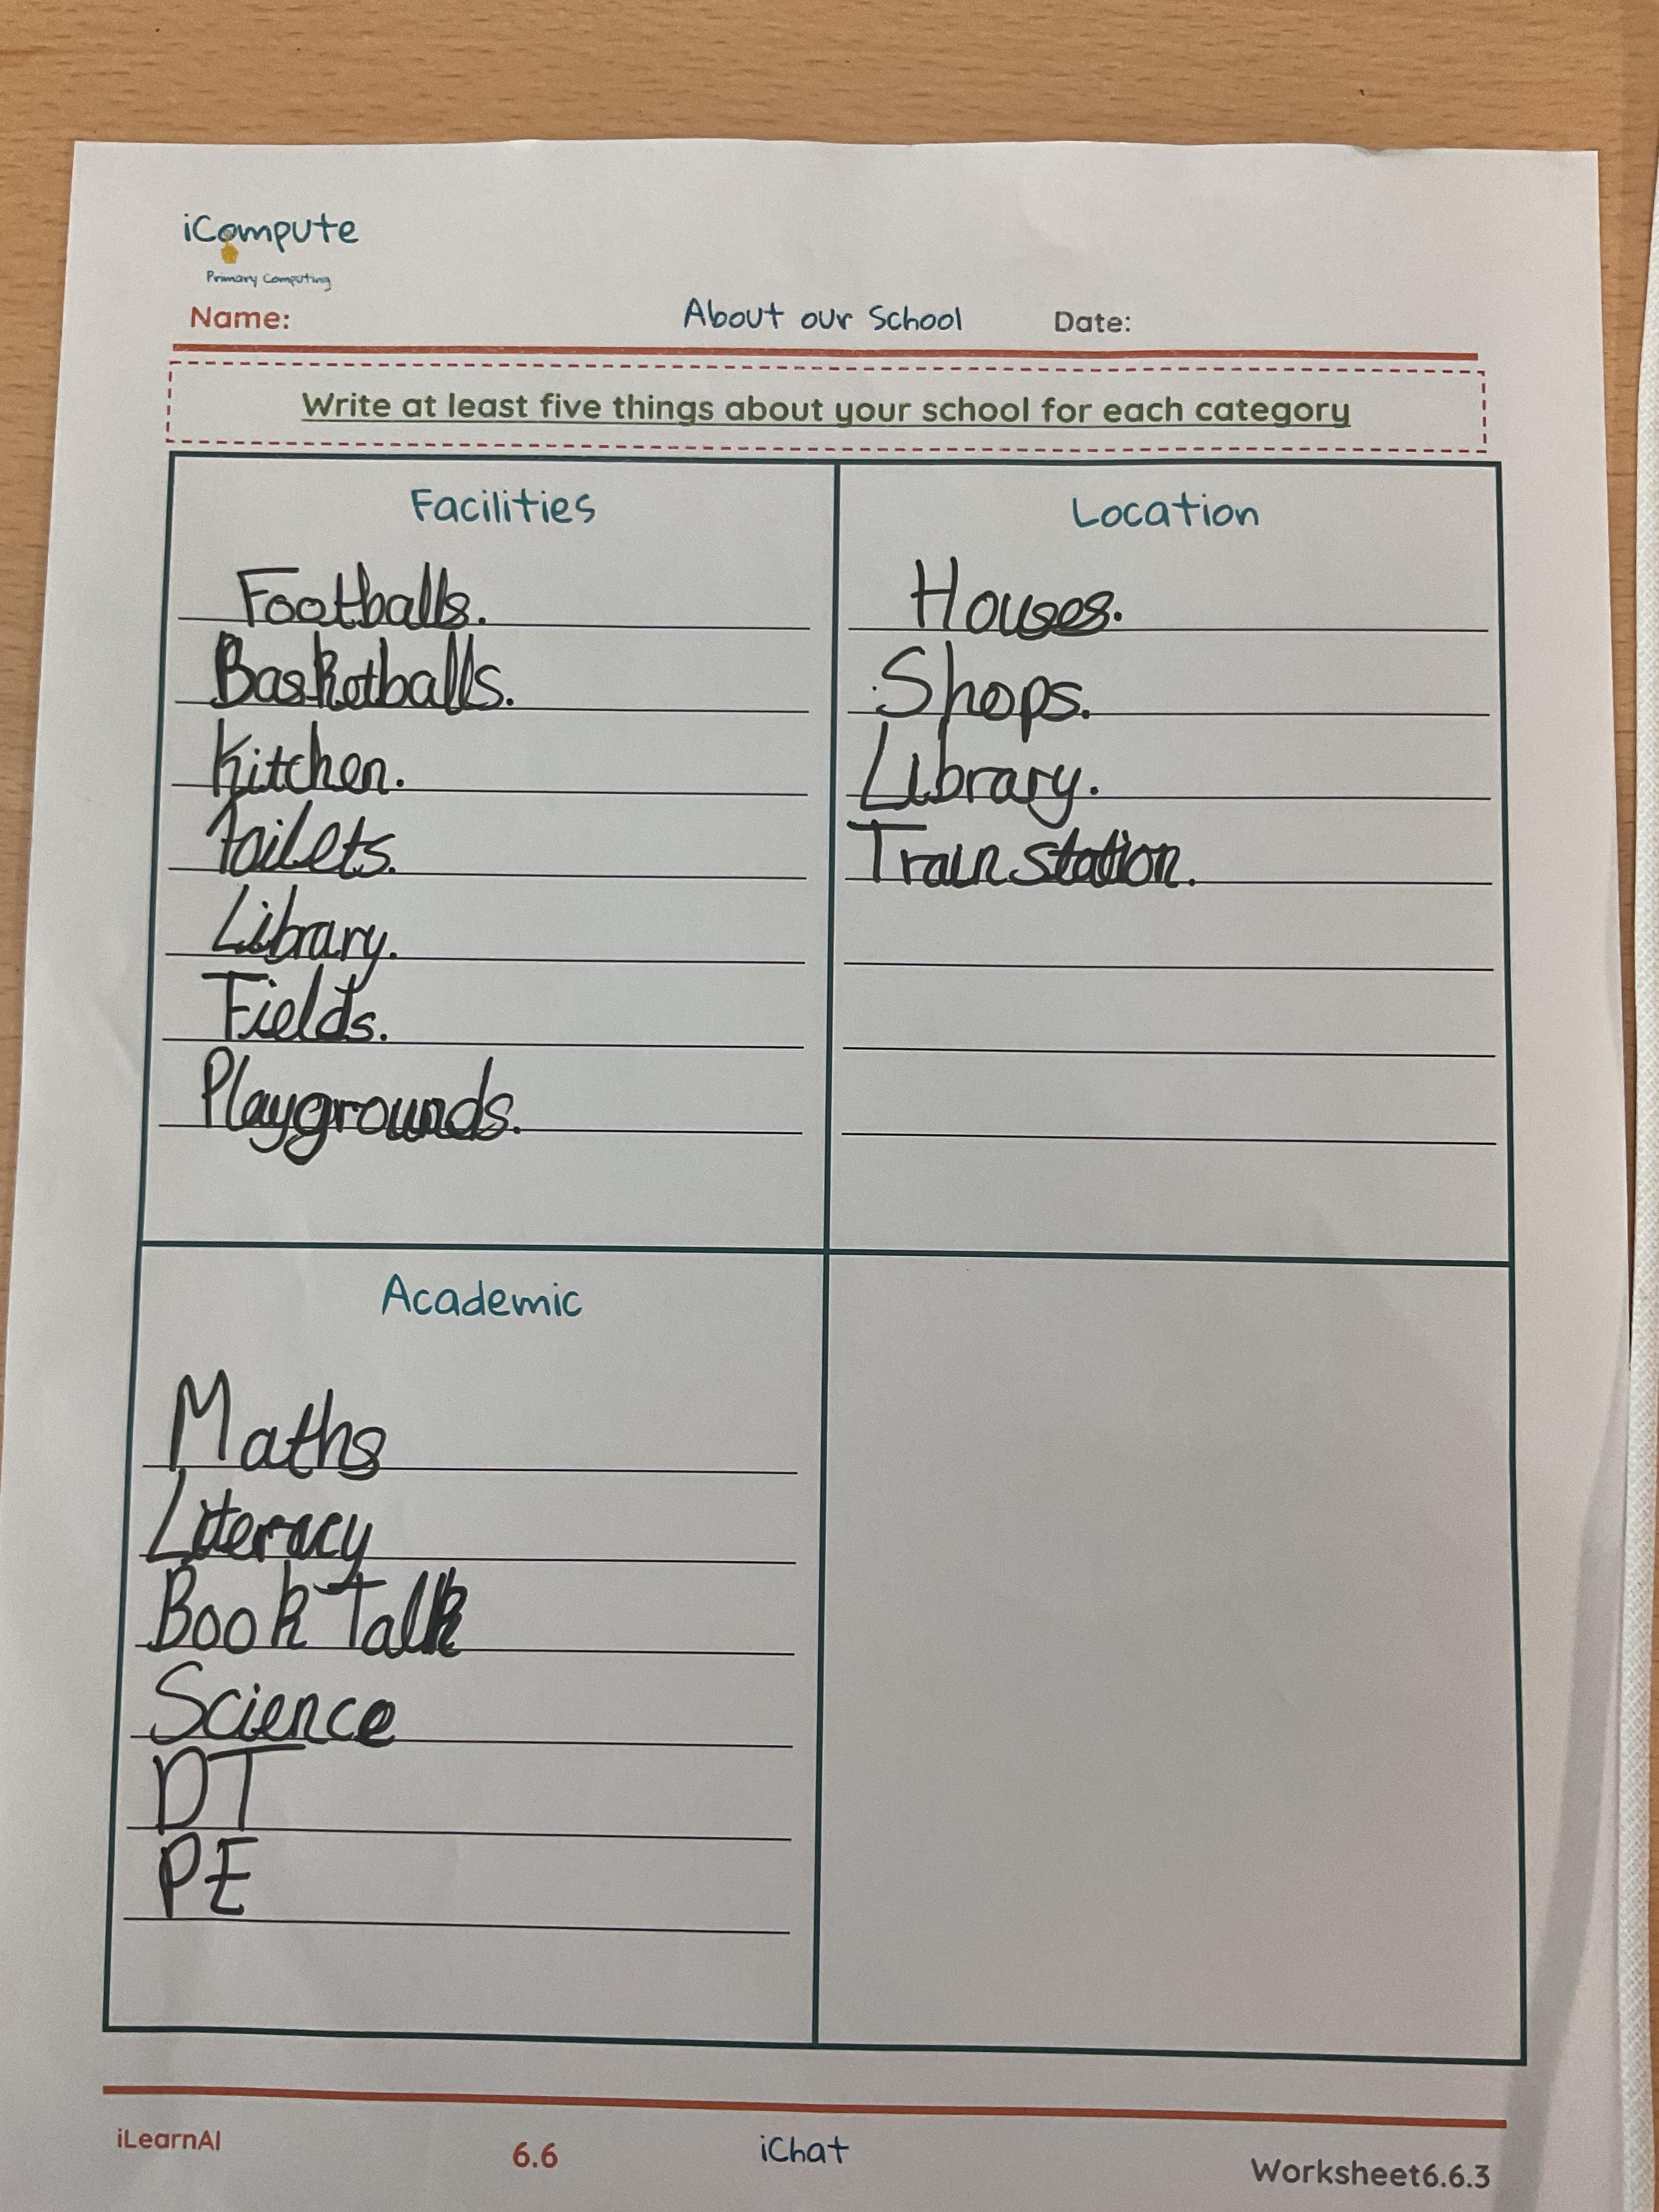 iCompute
Primary Computing
Name: About our School Date:
Write at least five things about your school for each category
Facilities
Footballs.
Basketballs.
Kitchen.
Toilets.
Library.
Fields.
Playgrounds.
Location
Houses.
Shops.
Library.
Train station.
Academic
Maths
Literacy
Book Talk
Science
DT
PE
iLearnAI 6.6 iChat Worksheet6.6.3